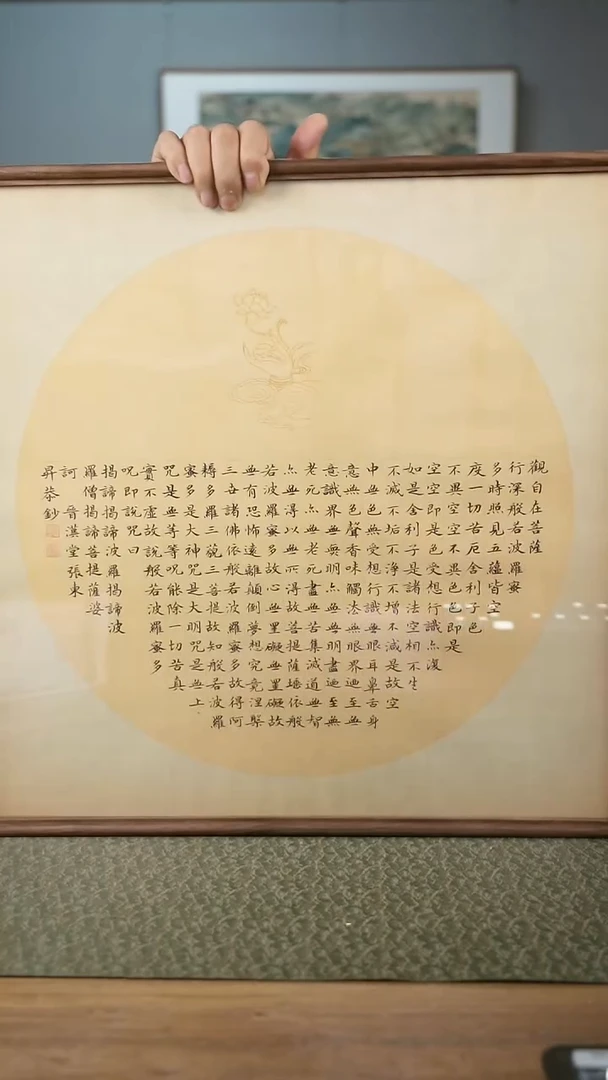 觀自在菩薩
行深般若波羅蜜
多時照見五蘊皆空
度一切苦厄舍利子色
不異空空不異色色即是
空空即是色受想行識亦復
如是舍利子是諸法空相不生
不滅不垢不淨不增不減是故空
中無色無受想行識無眼耳鼻舌身
意無色聲香味觸法無眼界乃至無
意識界無無明亦無無明盡乃至無
老死亦無老死盡無苦集滅道無智
亦無得以無所得故菩提薩埵依般
若波羅蜜多故心無罣礙無罣礙故
無有恐怖遠離顛倒夢想究竟涅槃
三世諸佛依般若波羅蜜多故得阿
耨多羅三藐三菩提故知般若波羅
蜜多是大神咒是大明咒是無上
咒是無等等咒能除一切苦真
實不虛故說般若波羅蜜多
咒即說咒曰
揭諦揭諦波羅揭諦波
羅僧揭諦菩提薩婆
訶 音漢堂張東
昇恭鈔